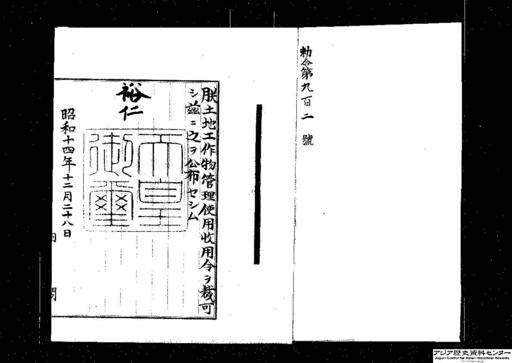 勅令第九百二號
朕土地工作物管理使用收用令ヲ裁可
シ茲ニ之ヲ公布セシム
裕仁
天皇御璽
昭和十四年十二月二十八日
内閣
アジア歴史資料センター
Japan Center for Asian Historical Records